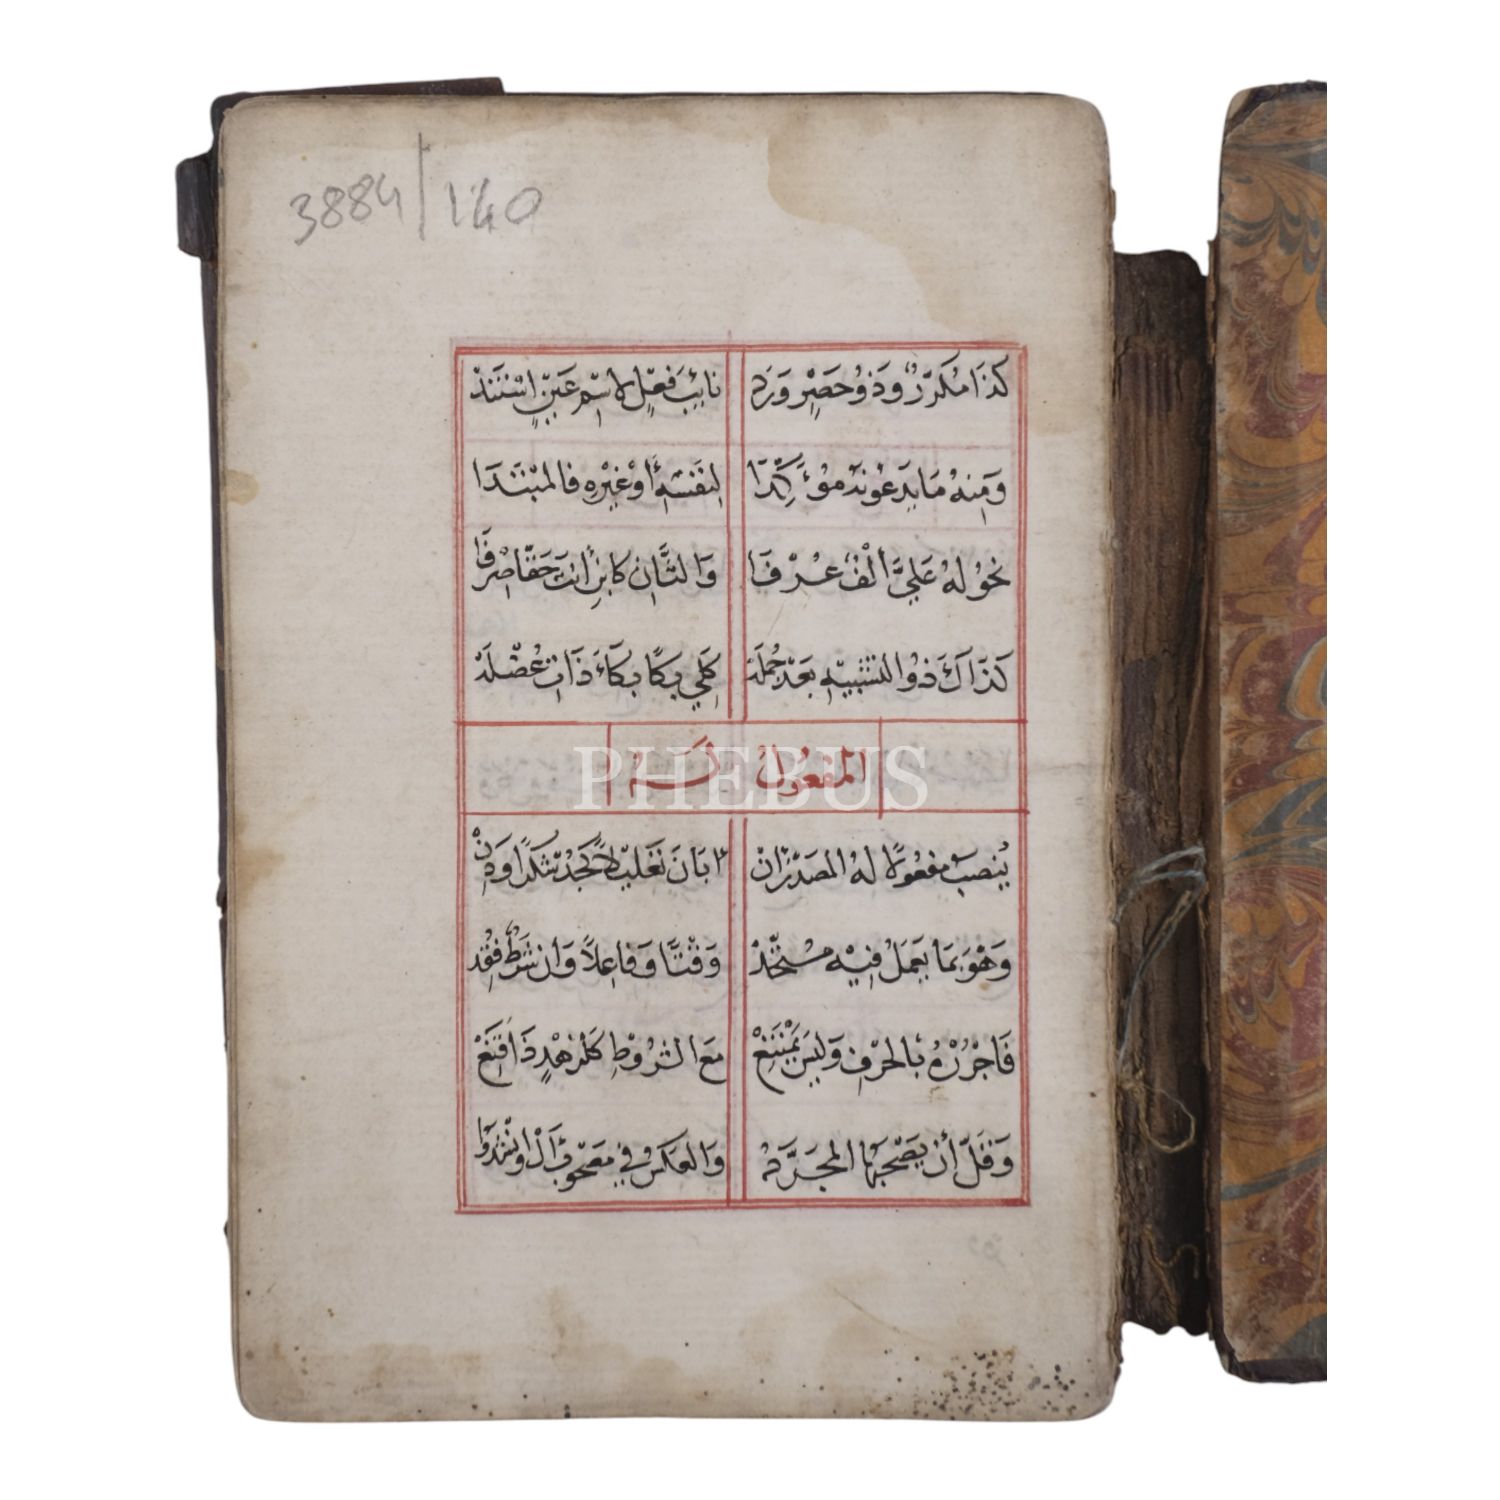 3884/140
كَذَا مُكَرَّرٌ وَذُو حَصْرٍ وَرَدَ نَائِبَ فِعْلٍ لِاسْمِ عَيْنٍ اسْتَنَدْ
وَمِنْهُ مَا يَدْعُونَهُ مُؤَكِّدَا لِنَفْسِهِ أَوْ غَيْرِهِ فَالمُبْتَدَا
نَحْوُ لَهُ عَلَيَّ أَلْفٌ عُرْفَا وَالثَّانِ كَابْنِ أَنْتَ حَقًّا صِرْفَا
كَذَاكَ ذُو التَّشْبِيهِ بَعْدَ جُمْلَهْ كَلِي بُكًا بُكَاءَ ذَاتِ عُضْلَهْ
المفعول له
PHEBUS
يُنْصَبُ مَفْعُولًا لَهُ المَصْدَرُ إنْ أَبَانَ تَعْلِيلًا كَجُدْ شُكْرًا وَدِنْ
وَهْوَ بِمَا يَعْمَلُ فِيهِ مُتَّحِدْ وَقْتًا وَفَاعِلًا وَإنْ شَرْطٌ فُقِدْ
فَاجْرُرْهُ بِالحَرْفِ وَلَيْسَ يَمْتَنِعْ مَعَ الشُّرُوطِ كَلِزُهْدٍ ذَا قَنِعْ
وَقَلَّ أَنْ يَصْحَبَهَا المُجَرَّدُ وَالعَكْسُ فِي مَصْحُوبِ أَلْ وَأَنْشَدُوا